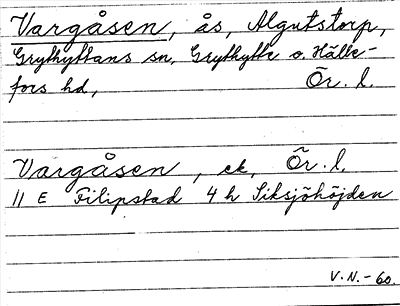 Vargåsen, ås, Algutstorp,
Grythyttans sn, Grythytte o. Hälle-
fors hd, Ör. l.
Vargåsen, ek, Ör. l.
11 E Filipstad 4 h Siksjöhöjden
V.N.-60.